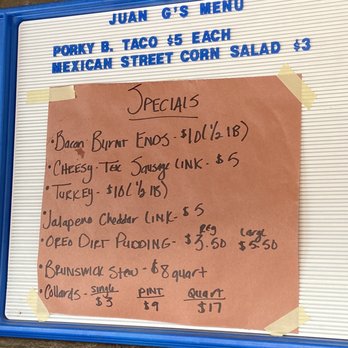 JUAN G'S MENU
PORKY B. TACO $5 EACH
MEXICAN STREET CORN SALAD $3
SPECIALS
• Bacon Burnt Ends - $10 (1/2 lB)
• Cheesy-Tex Sausage Link - $5
• Turkey - $10 (1/2 lB)
Jalapeno Cheddar Link - $5
Reg Large
• Oreo Dirt Pudding - $3.50 $5.50
• Brunswick Stew - $8 quart
• Collards - Single PINT Quart
$3 $9 $17